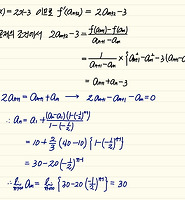 (x) = 2x-3 이므로 f'(aₙ₊₂) = 2aₙ₊₂-3
조건에서 2aₙ₊₂-3 = (f(aₙ₊₁)-f(aₙ))/(aₙ₊₁-aₙ)
= 1/(aₙ₊₁-aₙ) × {aₙ₊₁²-aₙ²-3(aₙ₊₁-a
= aₙ₊₁+aₙ-3
2aₙ₊₂ = aₙ₊₁+aₙ → 2aₙ₊₂-aₙ₊₁-aₙ=0
∴ aₙ = a₁ +
= 10 + 2/3 (40-10) {1-(-1/2)ⁿ⁻¹}
= 30-20(-1/2)ⁿ⁻¹
∴ lim n→∞ aₙ = lim n→∞ {30-20(-1/2)ⁿ⁻¹} = 30